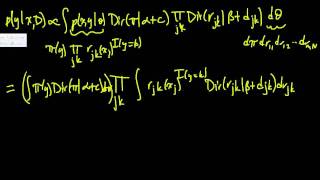 p(y|x,D) ∝ ∫ p(x,y|θ) Dir(π|α+c) ∏_{jk} Dir(r_{jk}|β+d_{jk}) dθ
π(y) ∏_{jk} r_{jk}(x_j)^{I(y=k)} dπ dr_{11} dr_{12} ... dr_{1N}
= (∫ π(y) Dir(π|α+c) dπ) ∏_{jk} ∫ r_{jk}(x_j)^{I(y=k)} Dir(r_{jk}|β+d_{jk}) dr_{jk}